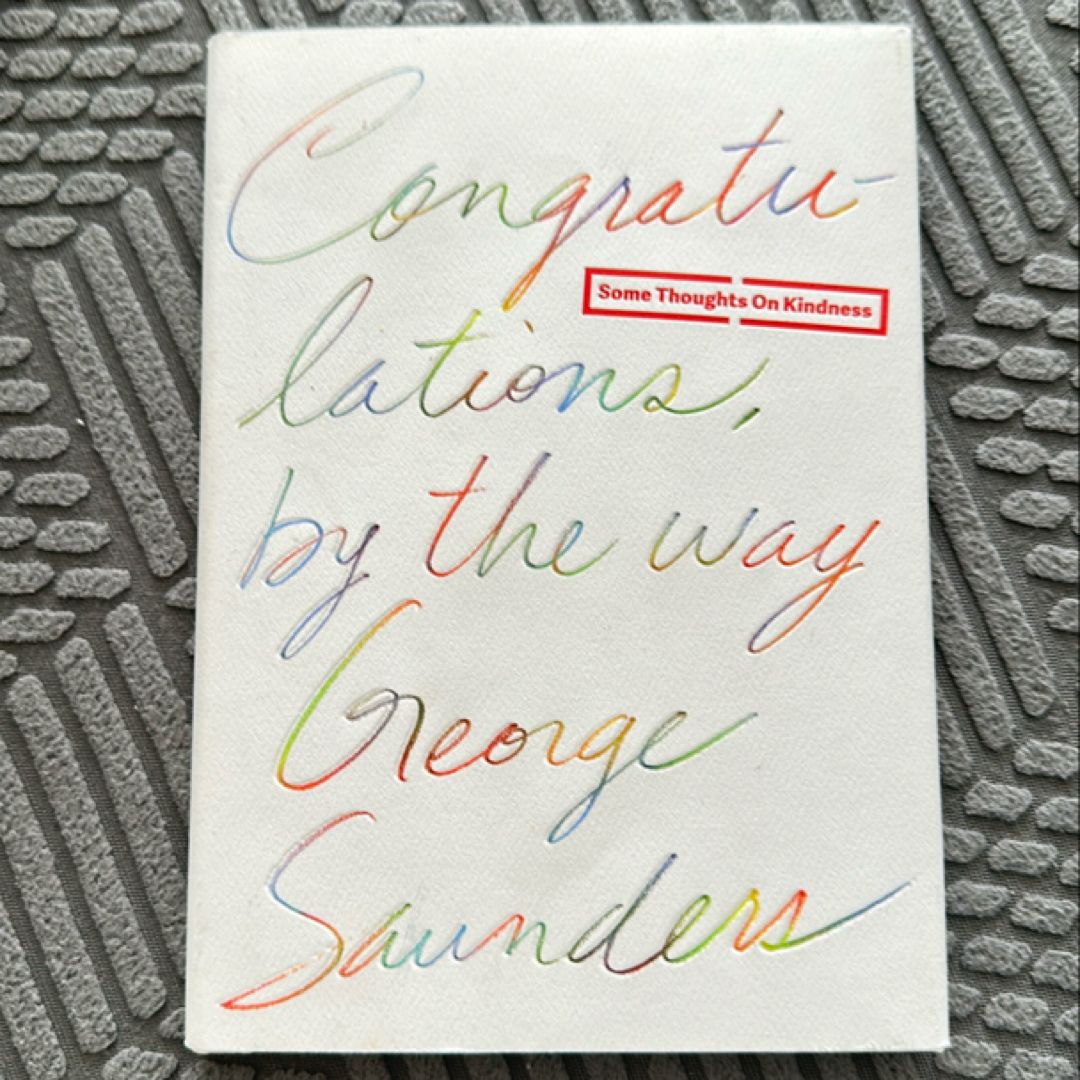 Congratu-
Some Thoughts On Kindness
lations,
by the way
George
Saunders